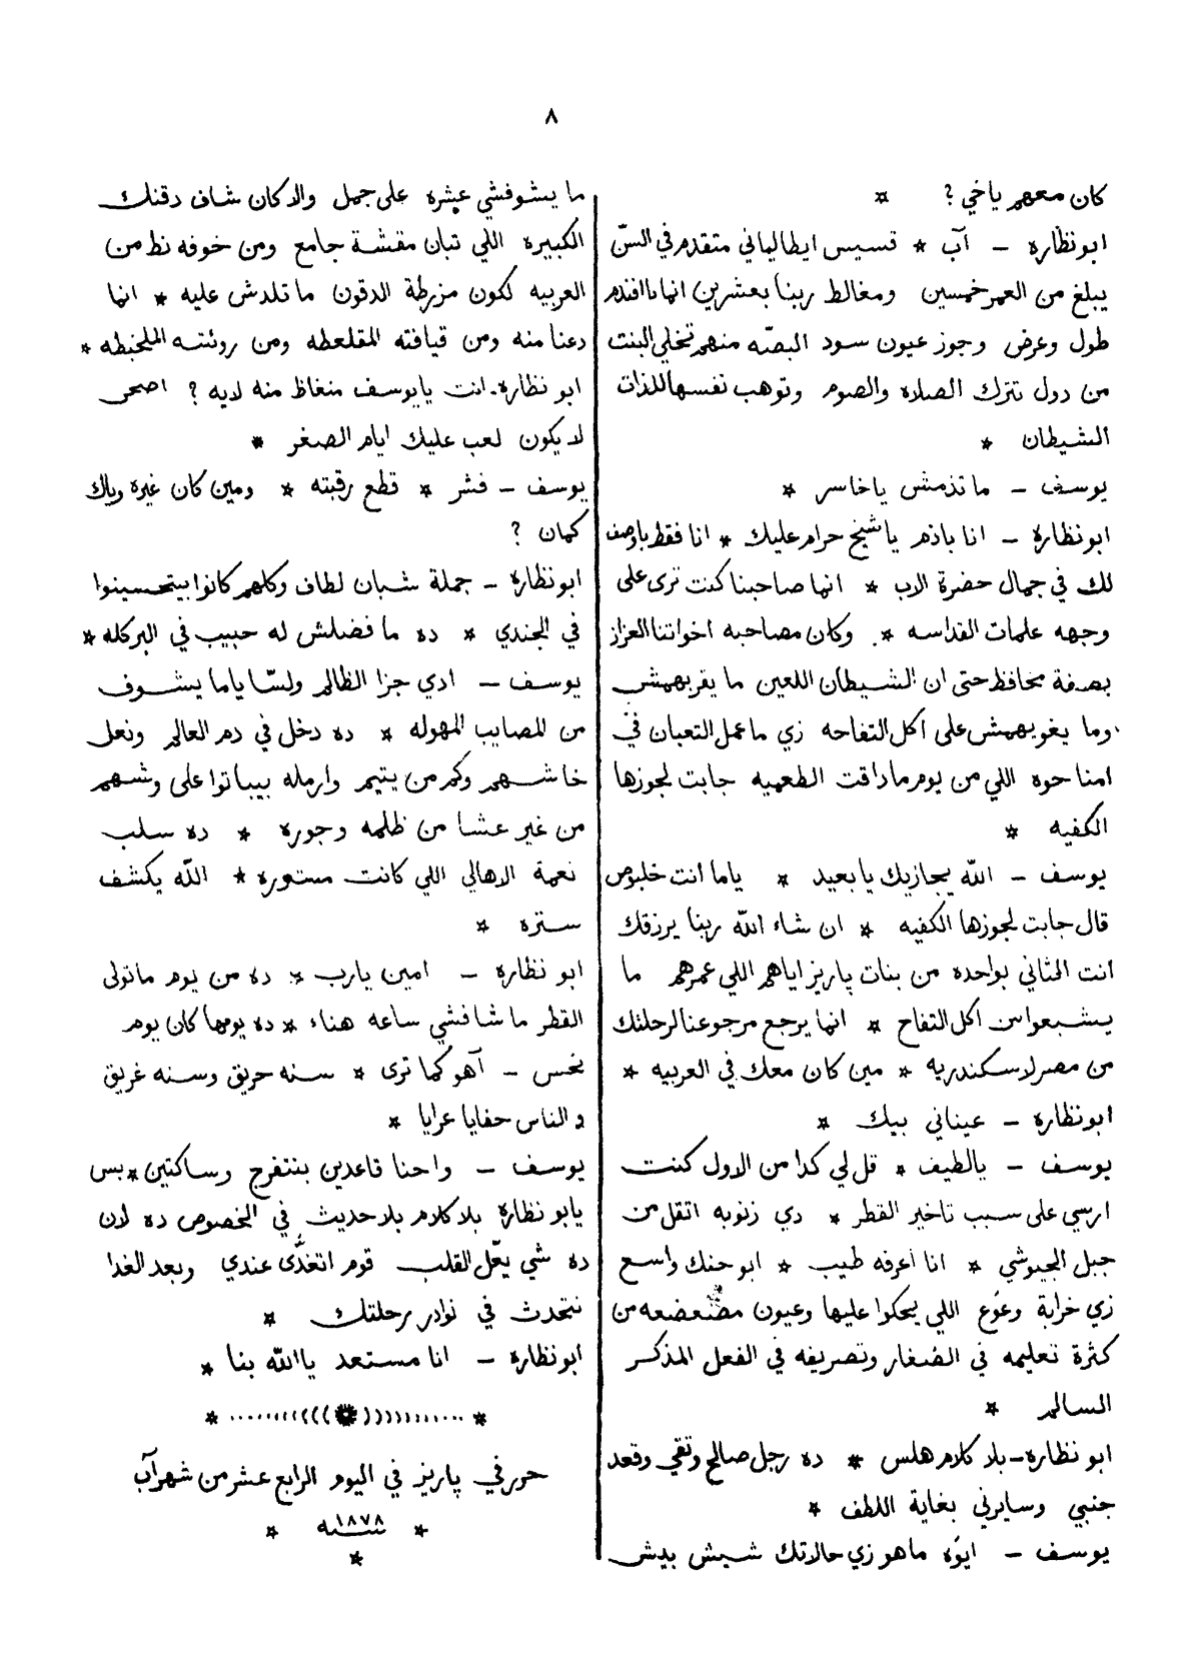 ٨
كان معهم ياخي ؟ *
ابو نظاره – آب * قسيس ايطالياني متقدم في السنّ
يبلغ من العمر خمسين ومغالط ربنا بعشرين انما ياافندم
طول وعرض وجوز عيون سود البصّه منهم تخلي البنت
من دول تترك الصلاه والصوم وتوهب نفسها للذات
الشيطان *
يوسف – ما تذمش ياخاسر *
ابو نظارة – انا باذم ياشيخ حرام عليك * انا فقط باوصف
لك في جمال حضرة الاب * انما صاحبنا كنت ترى على
وجهه علمات القداسه *. وكان مصاحبه اخواتنا العزاز
بصفة محافظ حتى ان الشيطان اللعين ما يقربهمش
وما يغويهمش على اكل التفاحه زي ما عمل التعبان في
امنا حوه اللي من يوم ماداقت الطعميه جابت لجوزها
الكفيه *
يوسف – الله يجازيك يا بعيد * ياما انت خلبوص
قال جابت لجوزها الكفيه * ان شاء الله ربنا يرزقك
انت الثاني بواحده من بنات پاريز اياهم اللي عمرهم ما
يشبعوا من اكل التفاح * انما يرجع مرجوعنا لرحلتك
من مصر لاسكندريه * مين كان معك في العربيه *
ابو نظارة – عيناني بيك *
يوسف – يالطيف * قل لي كدا من الاول كنت
ارسي على سبب تاخير القطر * دي زنوبه اتقل من
جبل الجيوشي * انا اعرفه طيب * ابو حنك واسع
زي خرابة وعوَع اللي يحكوا عليها وعيون مضعضعه من
كثرة تعليمه في الصغار وتصريفه في الفعل المذكر
السالم *
ابو نظارة – بلا كلام هلس * ده رجل صالح وتقي وقعد
جنبي وسايرني بغاية اللطف *
يوسف – ايوَه ماهو زي حالاتك شبش بيش
ما يشوفشي عشره على جمل والا كان شاف دقنك
الكبيره اللي تبان مقشة جامع ومن خوفه نط من
العربيه لكون مزرطة الدقون ما تلدش عليه * انما
دعنا منه ومن قيافته المقلعطه ومن روئته الملخبطه *
ابو نظارة . انت يا يوسف منغاظ منه لايه ؟ اصحى
لا يكون لعب عليك ايام الصغر *
يوسف – فشر * قطع رقبته * ومين كان غيره وياك
كمان ؟
ابو نظارة – جملة شبان لطاف وكلهم كانوا بيتحسينوا
في الجندي * ده ما فضلش له حبيب في البركله *
يوسف – ادي جزا الظالم ولسّا ياما يشوف
من المصايب المهوله * ده دخل في دم العالم ونعل
خاشهم وكم من يتيم وارمله بيباتوا على وشهم
من غير عشا من ظلمه وجوره * ده سلب
نعمة الاهالي اللي كانت مستوره * الله يكشف
ستره *
ابو نظاره – امين يارب * ده من يوم ما تولى
القطر ما شافشي ساعه هناء * ده يومها كان يوم
نحس – آهو كما ترى * سنه حريق وسنه غريق
والناس حفايا عرايا *
يوسف – واحنا قاعدين بنتفرج وساكتين * بس
يابو نظارة بلا كلام بلا حديث في الخصوص ده لان
ده شي يعّل القلب قوم اتغدَّى عندي وبعد الغدا
نتحدث في نوادر رحلتك *
ابو نظارة – انا مستعد ياالله بنا *
* ..........((((*))))).......... *
حور في پاريز في اليوم الرابع عشر من شهر آب
* سنه ١٨٧٨ *
*